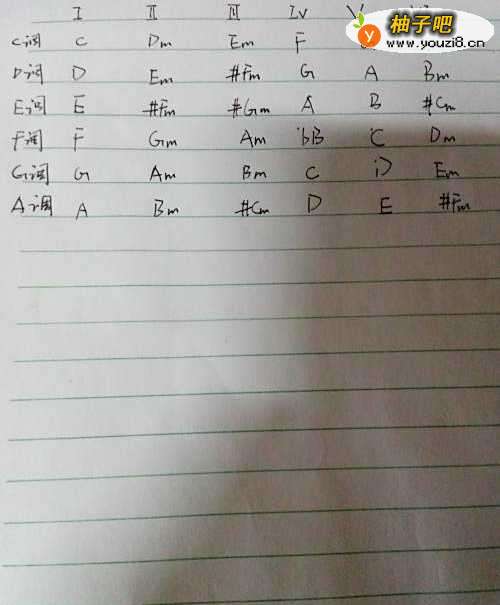 I II III IV V
柚子吧
www.youzi8.cn
C调 C Dm Em F
D调 D Em #Fm G A Bm
E调 E #Fm #Gm A B #Cm
F调 F Gm Am bB C Dm
G调 G Am Bm C D Em
A调 A Bm #Cm D E #Fm